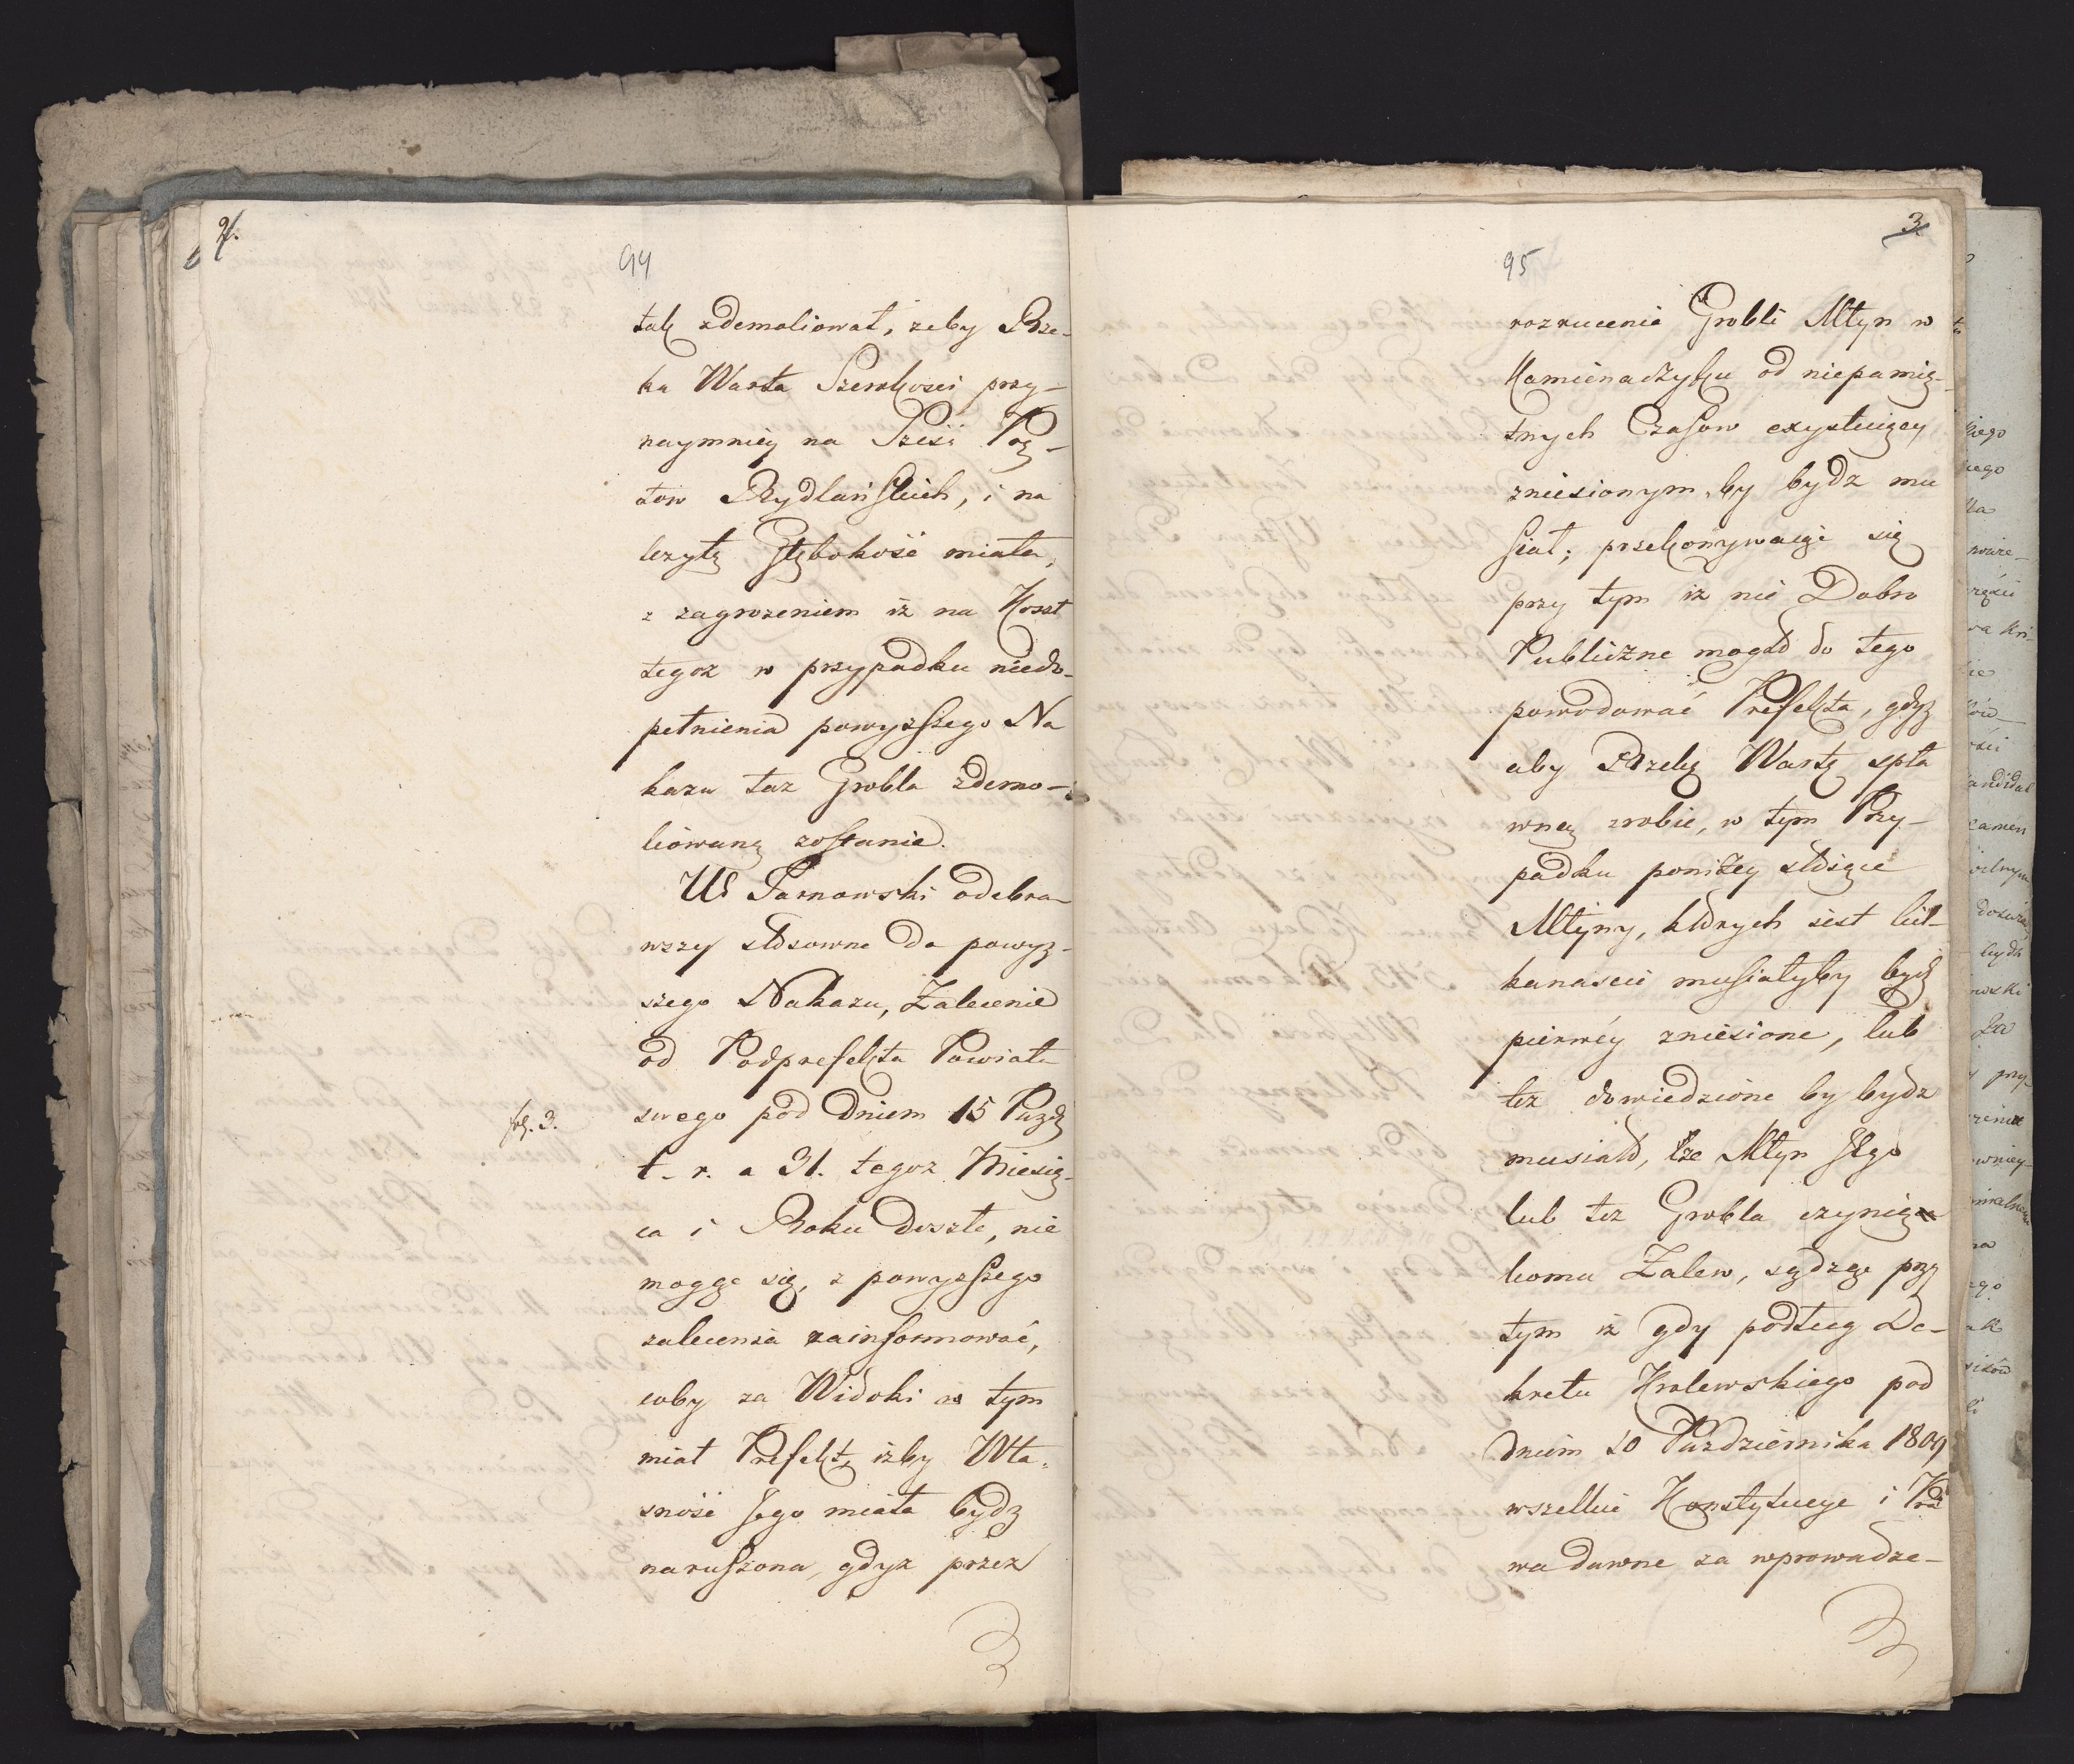 2.
94
tak zdemoliował, żeby Rze-
ka Warta Szerokości przy-
naymniey na Sześć Prę-
tow Rydlańskich, i na
leżytą Głębokość miała,
z zagrożeniem iż na Koszt
tegoż w przypadku niedo-
pełnienia powyższego Na
kazu taż Grobla zdemo-
liowaną zostanie.
Ur Tarnowski odebra-
wszy stosowne do powyż-
szego Nakazu, Zalecenie
od Podprefekta Powiatu
fol. 3.
swego pod Dniem 15 Paźdź
t. r. a 31. tegoż Miesią-
ca i Roku doszłe, nie
mogąc się, z powyższego
zalecenia zainformować,
coby za Widoki w tym
miał Prefekt, iżby Wła-
sność Jego miała bydź
naruszona, gdyż przez
3.
95
rozrucenie Grobli Młyn w
Kamienaczyku od niepamię-
tnych Czasów exystuiący
zniesionym by bydź mu
siał; przekonywaiąc się
przy tym iż nie Dobro
Publiczne mogło do tego
powodować Prefekta, gdyż
aby Rzekę Wartę spła
wną zrobić, w tym Przy-
padku poniżey stoiące
Młyny, których iest kil-
kanaście musiałyby bydź
pierwéy zniesione, lub
też dowiedzione by bydź
musiało, że Młyn Jego
lub też Grobla czynią
komu Zalew, sądząc przy
tym iż gdy podług De-
kretu Krolewskiego pod
dniem 10 Października 1809
wszelkie Konstytucye i Pra
wa dawne za wprowadze-